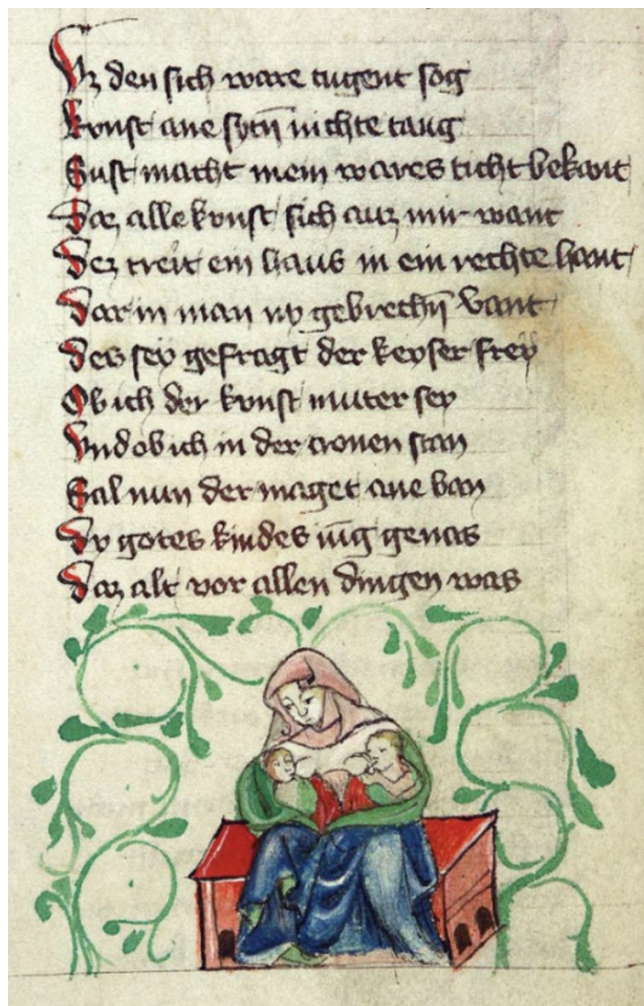 Vz den sich ware tugent sog
kvnst ane sytñ nichte taug
Sust macht mein wares ticht bekant
Daz alle kvnst sich auz mir want
Dez treit ein haus in ein rechte hant
Dar in man vy gebrechñ vant
Des sey gefragt der keyser frey
Ob ich der kvnst muter sey
Vnd ob ich in der cronen stan
Sal nun der maget ane ban
Dy gotes kindes iũg genas
Daz alt vor allen dingen was